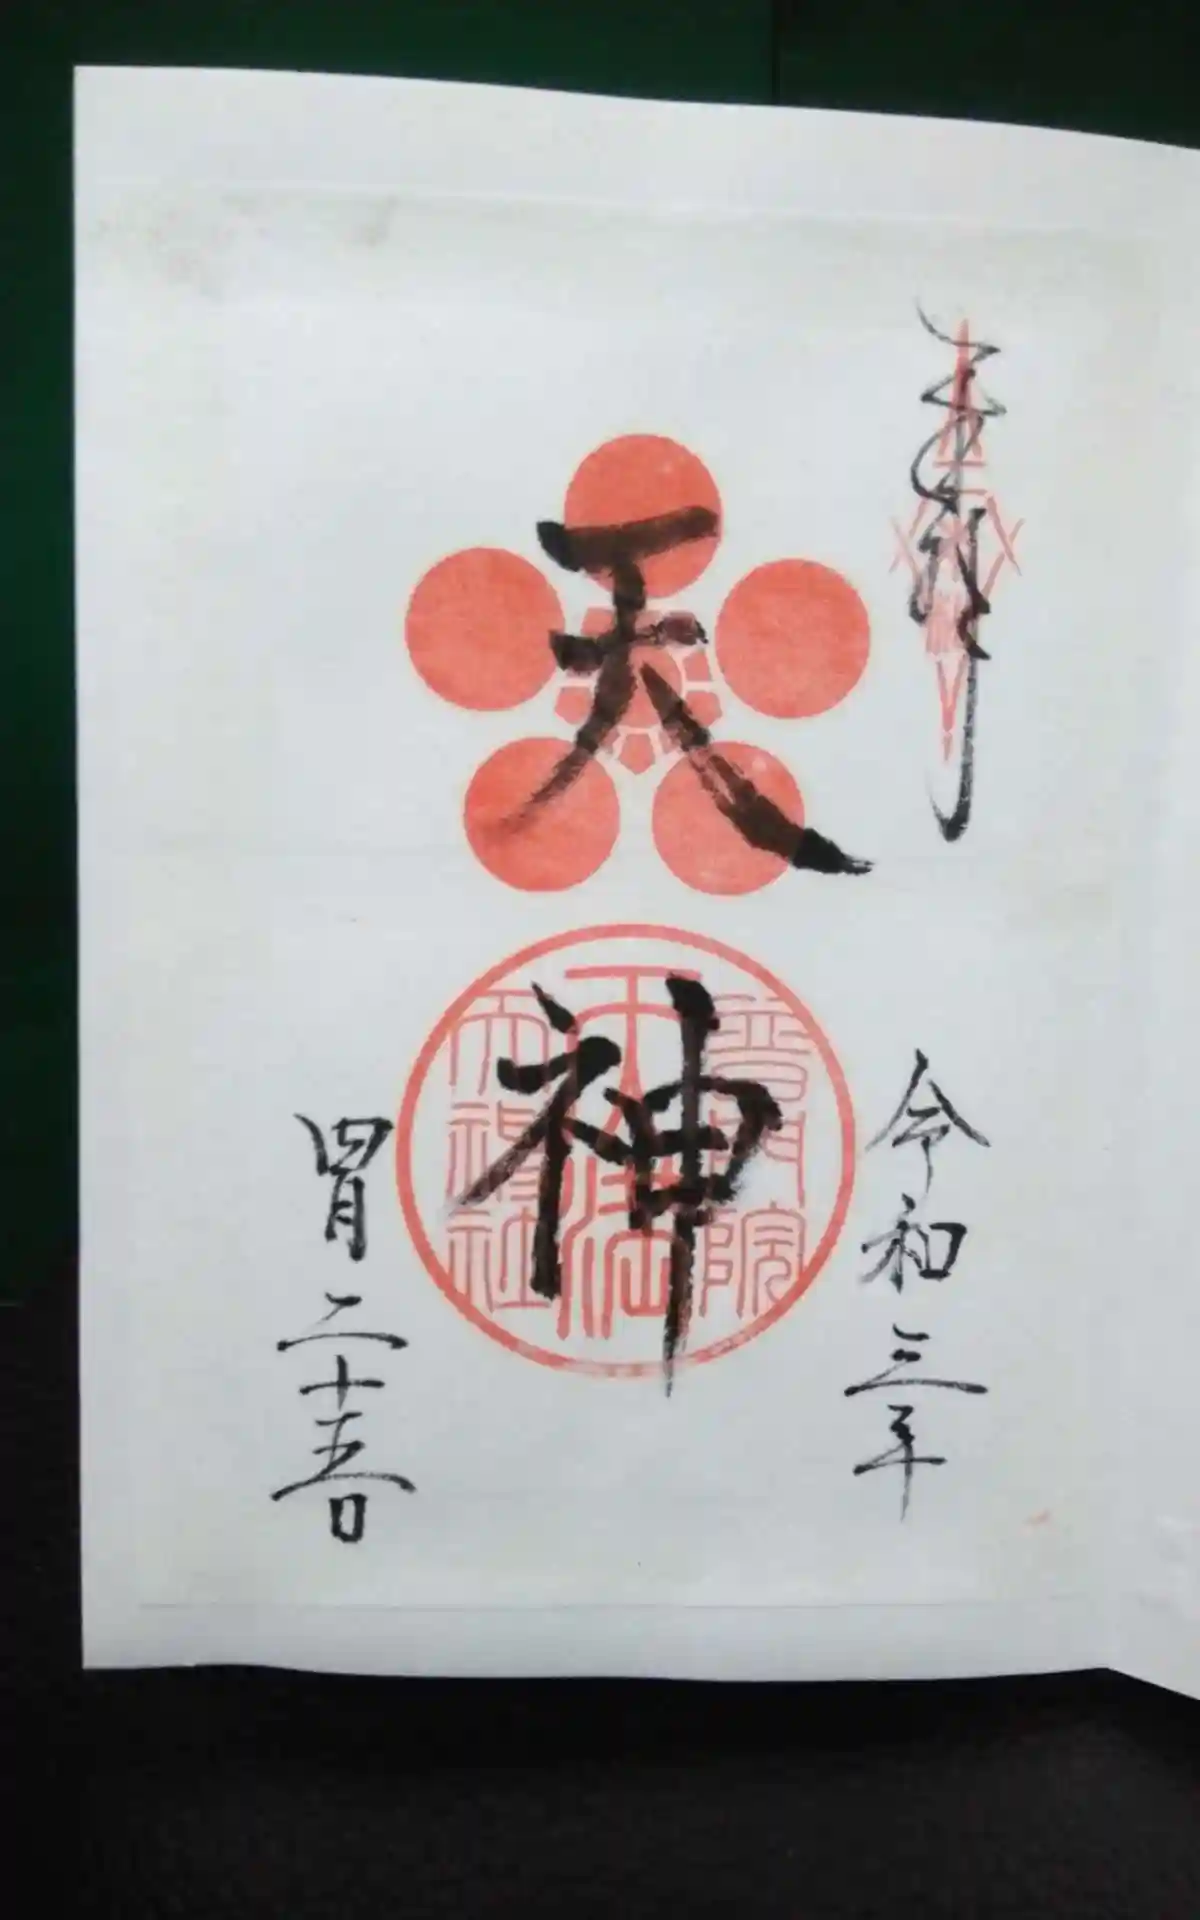 奉拝
令和三年
天神
普門院
天満
大神社
四月二十五日